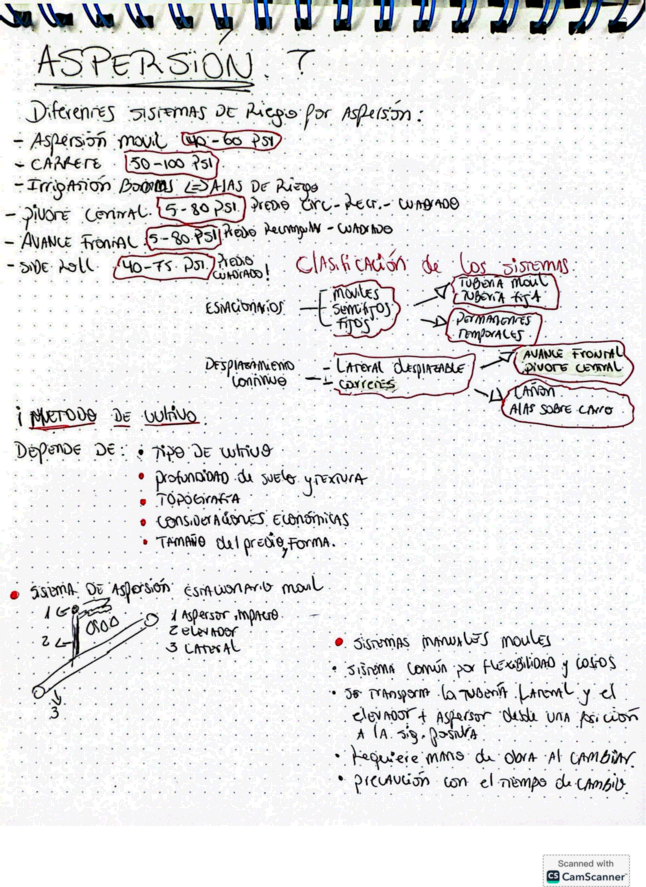 ASPERSIÓN. ?
Diferentes SISTEMAS DE Riego por Aspersión:
- Aspersión movil 40-60 PSI
- CARRETE 50-100 PSI
- Irrigasión Booms ALAS DE Riego
- PIVOTE CENTRAL. 5-80 PSI PREDIO CIRC - RECT. - CUADRADO
- AVANCE FRONTAL 5-80. PSI PREDIO Rectangular - CUADRADO
- SIDE Roll 40-75. PSI. PREDIO CUADRADO!
Clasificación de los sistemas:
ESTACIONARIOS
MOVILES
SEMIFIJOS
FIJOS
TUBERIA MOVIL
TUBERIA FIJA
PERMANENTES
TEMPORALES.
DESPLAZAMIENTO CONTINUO
- LATERAL desplazable
- carretes
AVANCE FRONTAL
PIVOTE CENTRAL
CAÑON
ALAS SOBRE CARRO
¡ METODO DE CULTIVO.
DEPENDE DE: • TIPO DE CULTIVO
• profundidad de suelo y TEXTURA
• TOPOGRAFIA
• CONSIDERACIONES ECONÓMICAS
• TAMAÑO del predio y FORMA.
• SISTEMA DE ASPERSIÓN ESTACIONARIO movil
1
2
3
1 Aspersor impacto
2 ELEVADOR
3 LATERAL
• SISTEMAS MANUALES MOVILES
• SISTEMA COMÚN por FLEXIBILIDAD y COSTOS
• SE TRANSPORTA LA TUBERÍA LATERAL y el
ELEVADOR + ASPERSOR desde UNA POSICIÓN
A LA SIG. POSITIVA
• Requiere MANO de obra Al CAMBIAR.
• PRECAUCIÓN con el TIEMPO de CAMBIO.
Scanned with
CS CamScanner